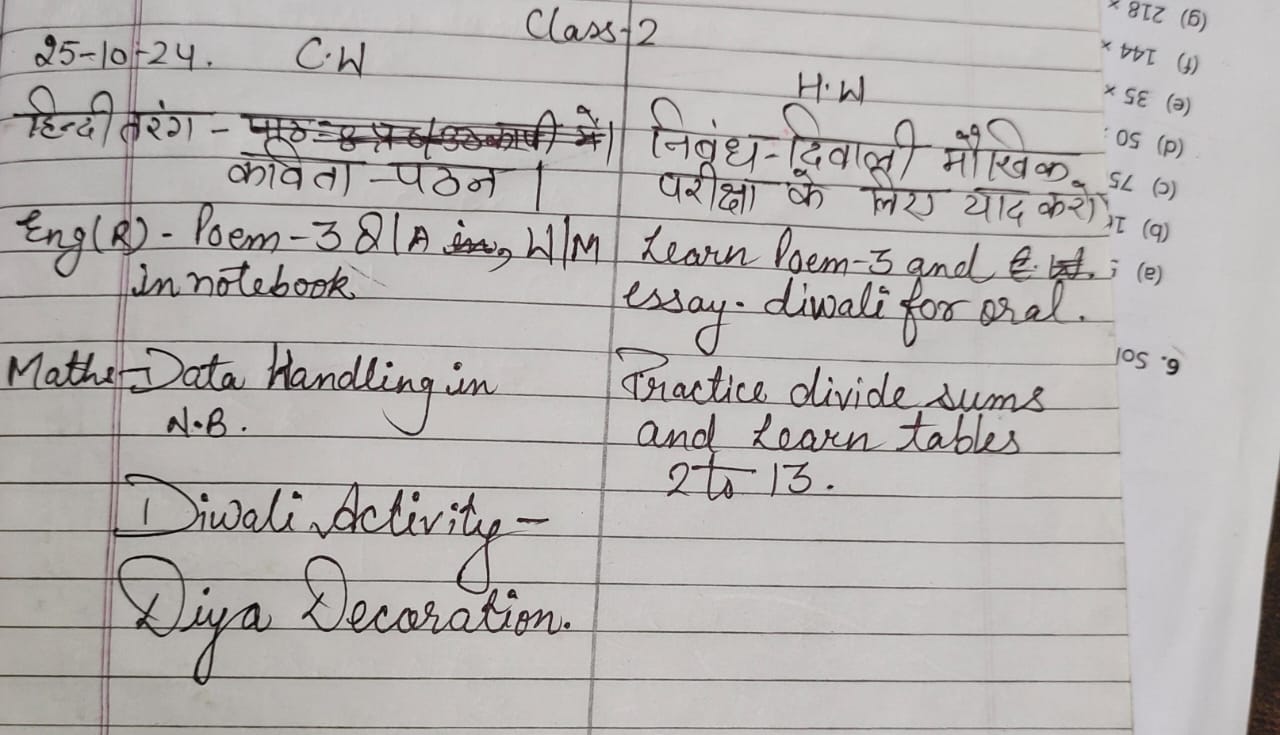 Class-2
25-10-24. C.W
H.W
हिन्दी तरंग -
कविता - पठन ।
निबंध - दिवाली मौखिक
परीक्षा के लिए याद करो
Eng(R) - Poem-3 Q/A in, W/M
in notebook
Learn Poem-3 and
essay. diwali for oral.
Maths - Data Handling in
N.B.
Practice divide sums
and Learn tables
2 to 13.
Diwali Activity -
Diya Decoration.
(g) 218 ×
(f) 144 ×
(e) 35 ×
(d) 50
(c) 75
(b)
(a)
6. Sol